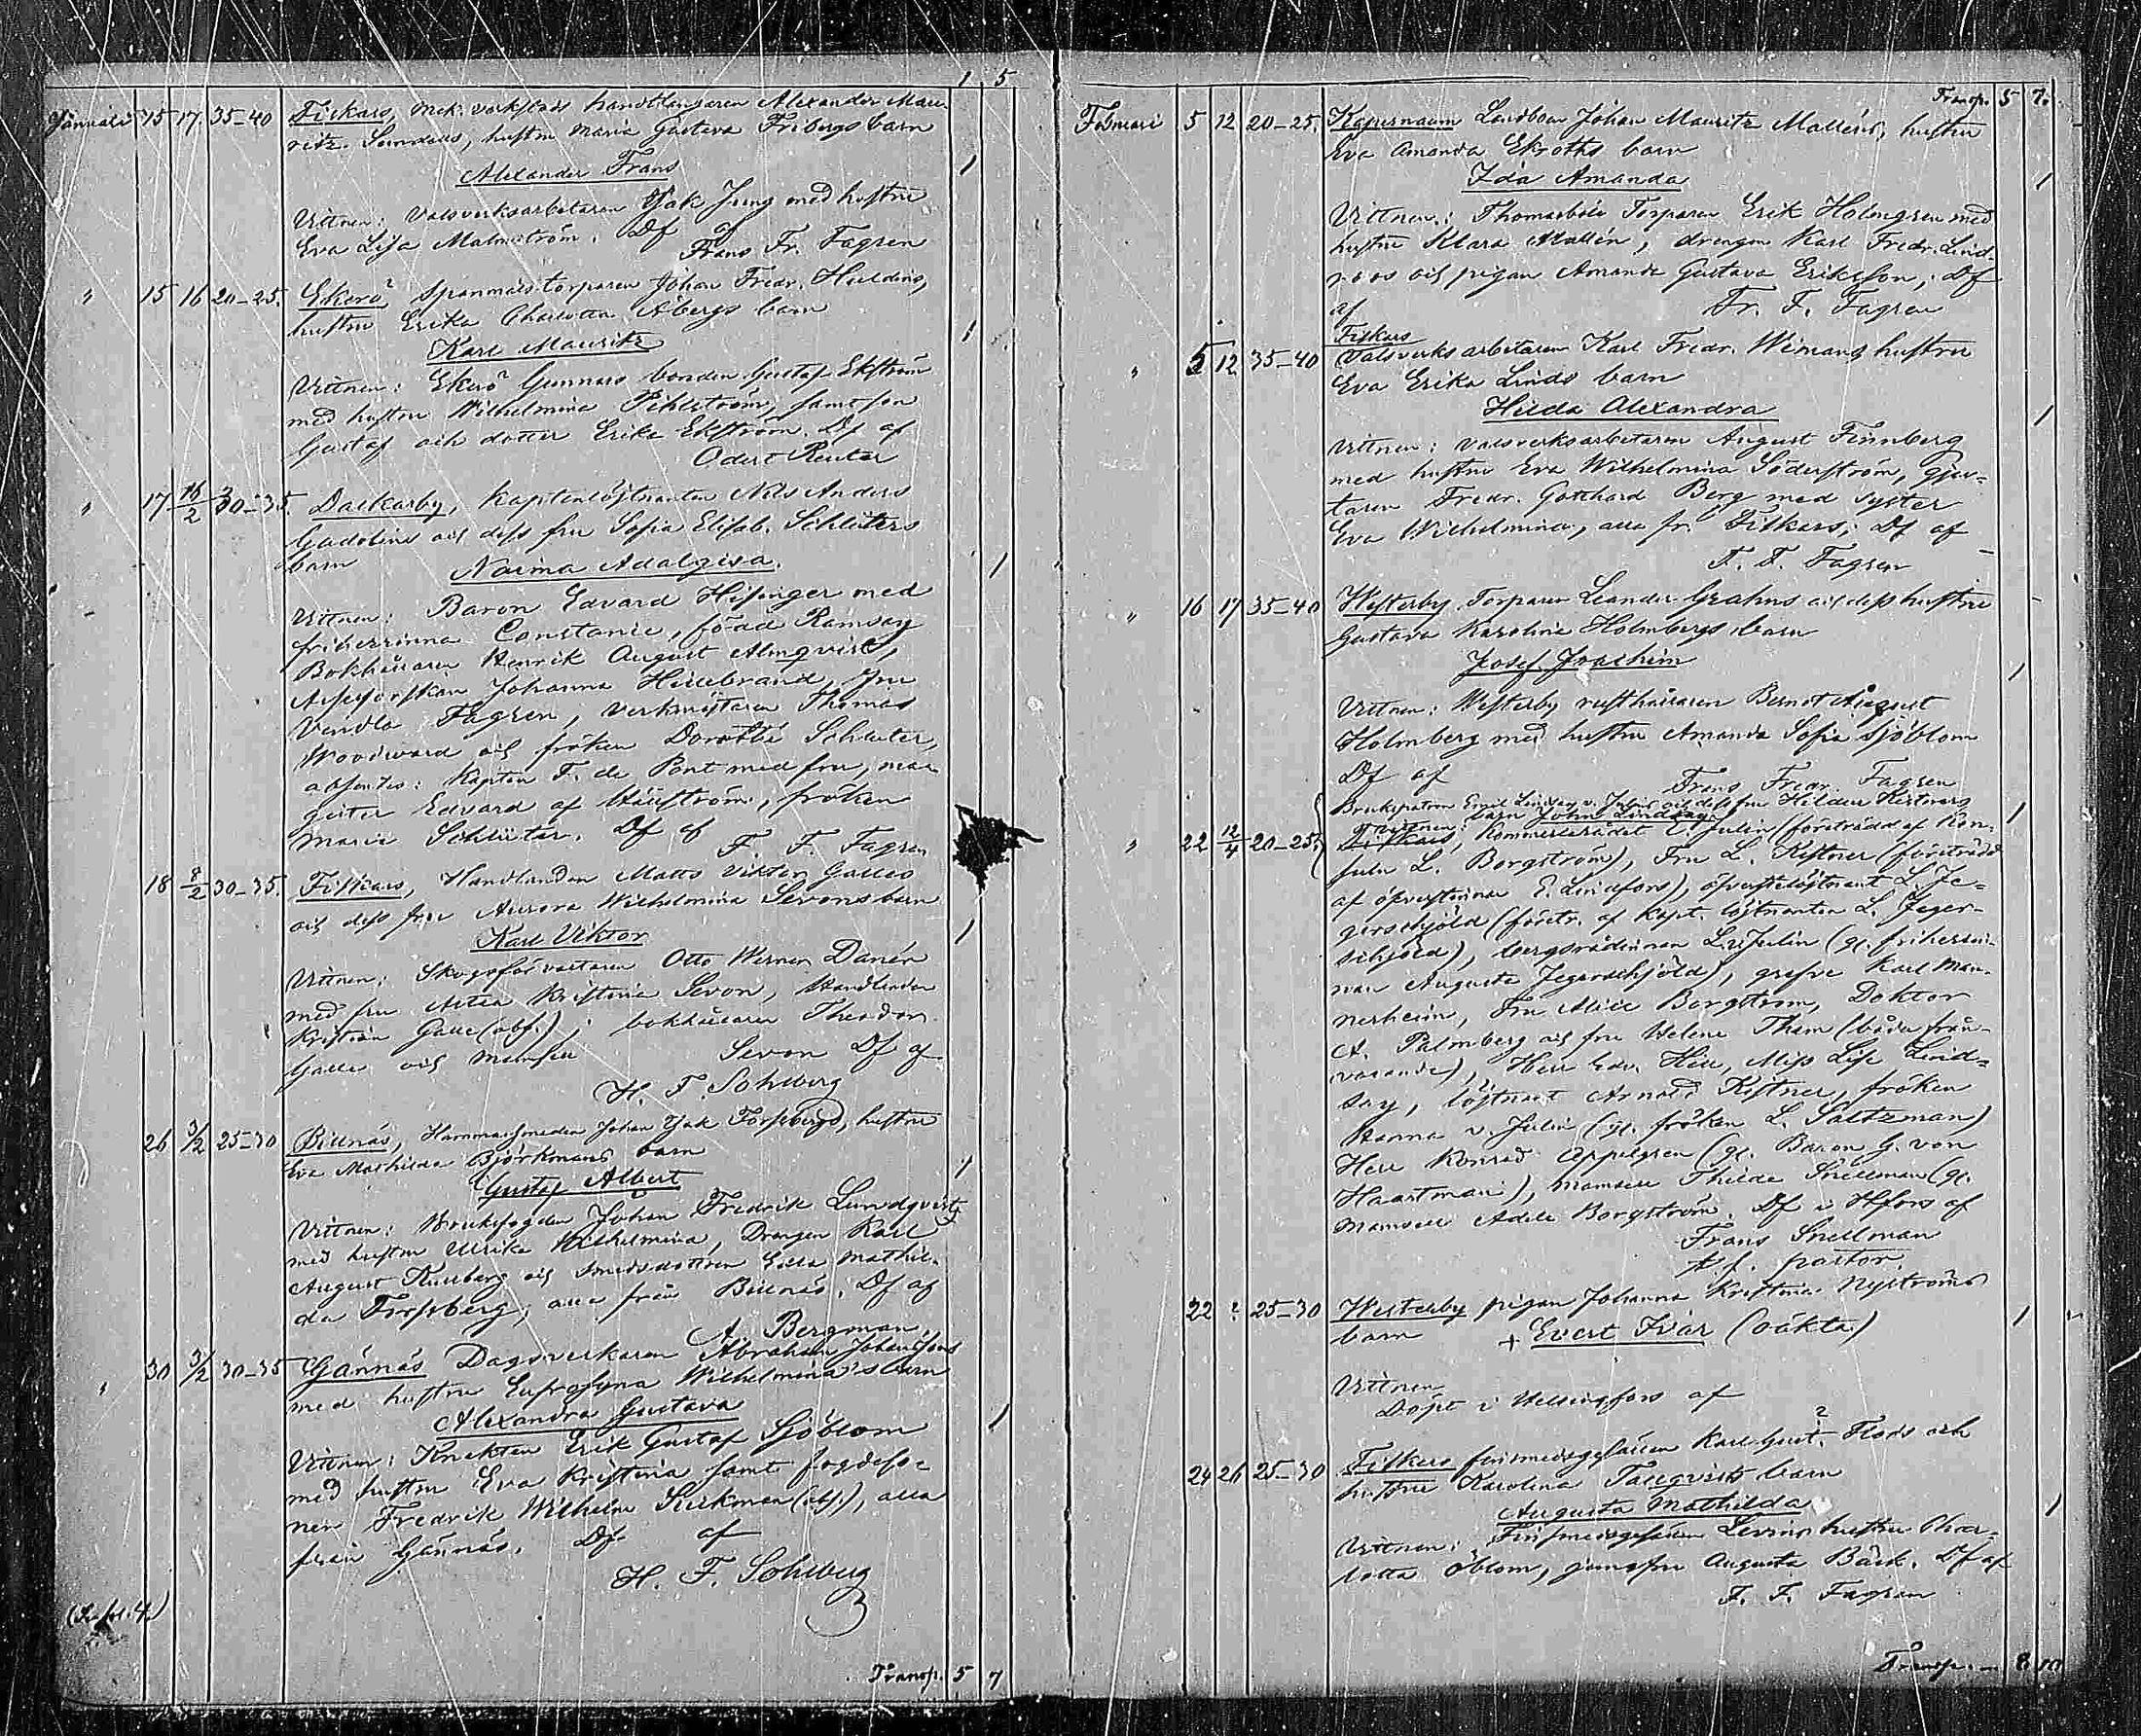 1 5
Januari 15 17. 35–40 Fiskars, Mek. verkstads handtlangaren Alexander Mau-
ritz Sundells, hustru Maria Gustava Fribergs barn
Alexander Frans 1
Vittnen: Valsverksarbetaren Isak Jung med hustru
Eva Lisa Malmström. Df af
Frans Fr. Fagren
" 15 16 20–25. Ekerö Spanmäis torparen Johan Fredr. Huldins,
hustru Erika Charlotta Åbergs barn
Karl Mauritz 1
Vittnen: Ekerö Gunnars bonden Gustaf Ekström
med hustru Wilhelmina Pihlström, samt son
Gustaf och dotter Erika Ekström. Df af
Odert Reuter
" 17 16/2 30–35. Dalkarby, Kaptenlöjtnanten Nils Anders
Gadolins och dess fru Sofia Elisab. Schlüters
barn Norma Adalgisa. 1
Vittnen: Baron Edvard Hisinger med
friherrinna Constance, född Ramsay
Bokhållaren Henrik August Almqvist,
Assessorskan Johanna Hillebrand, fru
Vendla Fagren, verkmästaren Thomas
Woodward och fröken Dorothé Schluter,
absentes: Kapten F. de Pont med fru, ma-
gister Edvard af Hällström, fröken
Maria Schlüter. Df af
F. F. Fagren
18 8/2 30–35. Fiskars, Handlanden Matts Viktor Galles
och dess fru Aurora Wilhelmina Sevons barn
Karl Viktor 1
Vittnen: Skogsförvaltaren Otto Werner Danér
med fru Kristina Sevon, Handlanden
Kristian Galle (abs.); bokhållaren Theodor
Galle och Mamsell Sevon Df af
H. F. Sohlberg
26 3/2 25–30 Billnäs, Hammarsmeden Johan Isak Forssbergs, hustru
Eva Mathilda Björkmans barn
Gustaf Albert 1
Vittnen: Bruksfogden Johan Fredrik Lundqvist
med hustru Ulrika Wilhelmina, Drengen Karl
August Kullberg och smedsdottren Edla Mathil-
da Forssberg, alla från Billnäs. Df af
A. Bergman
" 30 3/2 30–35 Gännäs Dagsverkaren Abraham Johanssons
med hustru Eufrosyna Wilhelmina's barn
Alexandra Gustava 1
Vittnen: Knekten Erik Gustaf Sjöblom
med hustru Eva Kristina samt fogdeso-
nen Fredrik Wilhelm (abs.), alla
från Gännäs. Df af
H. F. Sohlberg
Transp. 5 7
Transp. 5 7.
Februari 5 12 20–25. Kapernaum Landboen Johan Mauritz Malléns, hustru
Eva Amanda Ekroths barn
Ida Amanda 1
Vittnen: Thomasböle Torparen Erik Holmgren med
hustru Klara Mallén, drengen Karl Fredr. Lind-
roos och pigan Amanda Gustava Eriksson; Df
af Fr. F. Fagren
Fiskars
" 5 12 35–40 Valsverks arbetaren Karl Fredr. Wimans hustru
Eva Erika Linds barn
Hilda Alexandra 1
Vittnen: Valsverksarbetaren August Finnberg
med hustru Eva Wilhelmina Söderström, gju-
taren Fredr. Gotthard Berg med syster
Eva Wilhelmina, alla fr. Fiskars; Df af
F. F. Fagren
" 16 17 35–40 Westerby, Torparen Leander Grahns och dess hustru
Gustava Karolina Holmbergs barn
Josef Joachim 1
Vittnen: Westerby rusthållaren Bernt August
Holmberg med hustru Amanda Sofia Sjöblom
Df af Frans Fredr. Fagren
Brukspatron Emil Lindsay v. Julins och dess fru Hildur Kistners
barn John Lindsay 1
" 22 12/4 20–25. Fiskars, Vittnen: Kommerserådet E. Julin (företrädd af Kon-
suln L. Borgström), Fru L. Kistner (företrädd
af öfverstinnan E. Lindfors), öfverstelöjtnant L. Je-
gerschjöld (företr. af Kapt. löjtnanten L. Jeger-
schjöld), bergsrådinnan L. v. Julin (gl. friherrin-
nan Augusta Jegerschjöld), grefve Karl Man-
nerheim, Fru Alice Borgström, Doktor
A. Palmberg och fru Helene Tham (båda från-
varande), Herr Edv. Hill, Miss Lise Lind-
say, löjtnant Arnold Kistner, fröken
Hanna v. Julin (gl. fröken L. Saltzman)
Herr Konrad Appelgren (gl. Baron G. von
Haartman), mamsell Thilda Snellman (gl.
mamsell Adele Borgström. Df i Hfors af
Frans Snellman
pastor.
22 ? 25–30 Westerby pigan Johanna Kristina Nyströms
barn + Evert Ivar (oäkta) 1
Vittnen
Döpt i Helsingfors af
24 26 25–30 Fiskars finsmedsgesällen Karl Gust. ? Flods och
hustru Karolina Tallqvists barn
Augusta Mathilda 1
Vittnen: Finsmedsgesällen Levins hustru Char-
lotta Oblom, jungfru Augusta Bäck. Df af
F. F. Fagren
Transp. – 8 10